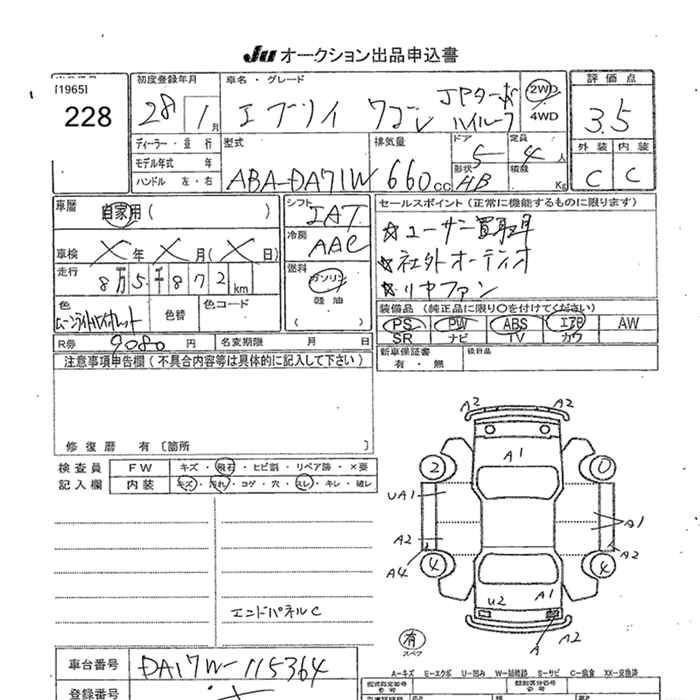 Ju オークション出品申込書
[1965]
228
初度登録年月
28 1 月
車名・グレード
エブリイ ワゴン JPターボ ハイルーフ
2WD
4WD
評価点
3.5
外装 内装
C C
ディーラー・並行
モデル年式 年
ハンドル 左・右
型式
ABA-DA71W
排気量
660 cc
ドア
5
定員
4 人
形状
HB
積載
Kg
車歴
自家用( )
シフト
IAT
冷房
AAC
車検 X 年 X 月( X 日)
走行 8万5千872km
燃料
ガソリン
軽油
( )
セールスポイント(正常に機能するものに限ります)
☆ユーザー買取車
☆社外オーディオ
☆リヤファン
色
ムーンライトバイオレット
色替
色コード
装備品(純正品に限り○を付けてください)
PS PW ABS エアB AW
SR ナビ TV カワ
R券 9080 円
名変期限 月 日
新車保証書
有・無
後日品
注意事項申告欄(不具合内容等は具体的に記入して下さい)
修復歴 有〔箇所 〕
検査員
記入欄
FW キズ・飛石・ヒビ割・リペア跡・X要
内装 キズ・汚れ・コゲ・穴・スレ・キレ・破レ
エンドパネルC
A2 A2
A1
2 0
UA1
A1
A2 A2
A4
4 4
U2 A1
A A2
有
スペア
車台番号 DA17W-115364
登録番号
A=キズ E=エクボ U=凹み W=補修跡 S=サビ C=腐食 XX=交換済